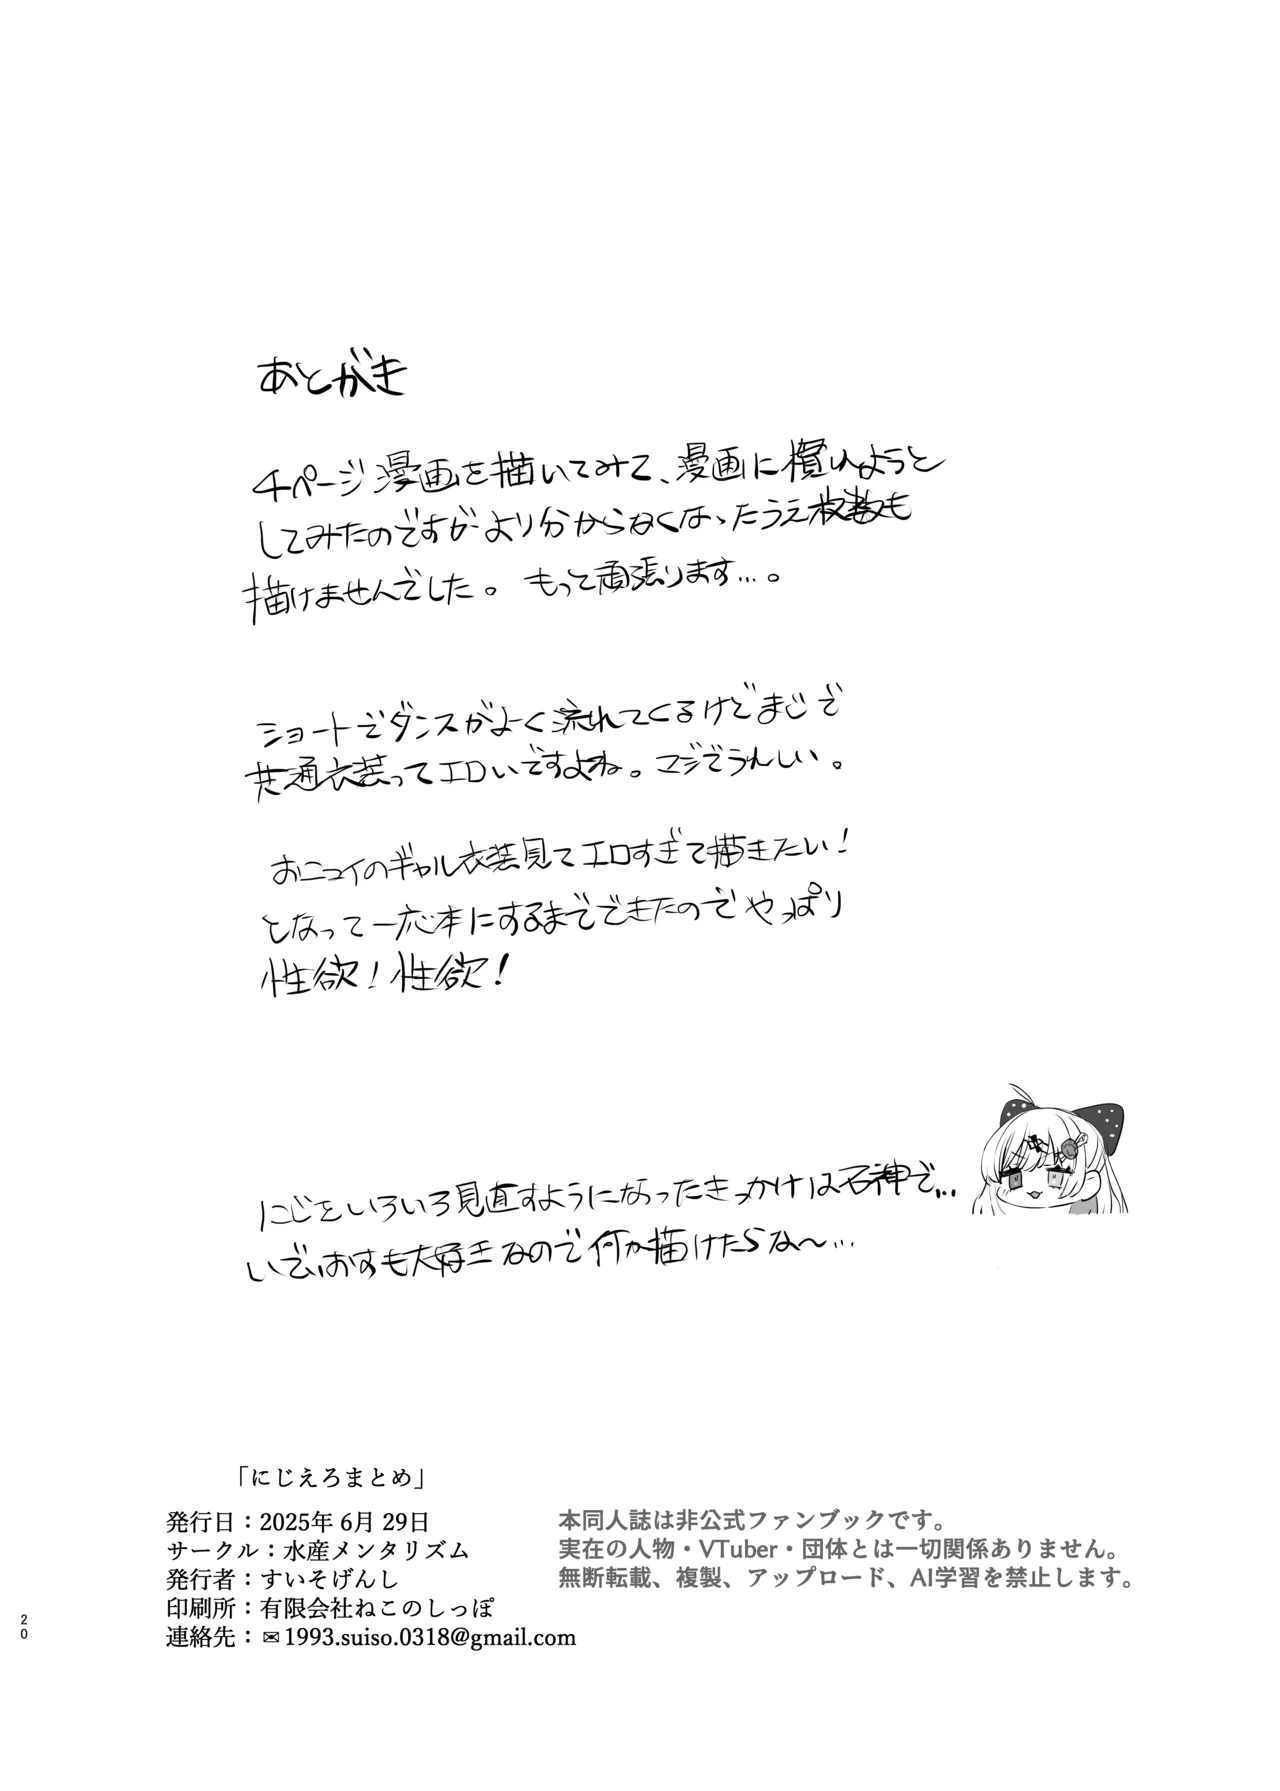 あとがき
4ページ漫画を描いてみて、漫画に慣れようと
してみたのですがより分からなくなったうえ枚数も
描けませんでした。もって頑張ります…。
ショートでダンスがよーく流れてくるけどまじで
共通衣装ってエロいですよね。マジでうれしい。
おニュイのギャル衣装見てエロすぎて描きたい!
となって一応本にするまでできたのでやっぱり
性欲!性欲!
にじをいろいろ見直すようになったきっかけは石神で…
いでぃおすも大好きなので何か描けたらな〜…
「にじえろまとめ」
発行日:2025年 6月 29日
サークル:水産メンタリズム
発行者:すいそげんし
印刷所:有限会社ねこのしっぽ
連絡先:✉1993.suiso.0318@gmail.com
本同人誌は非公式ファンブックです。
実在の人物・VTuber・団体とは一切関係ありません。
無断転載、複製、アップロード、AI学習を禁止します。
20